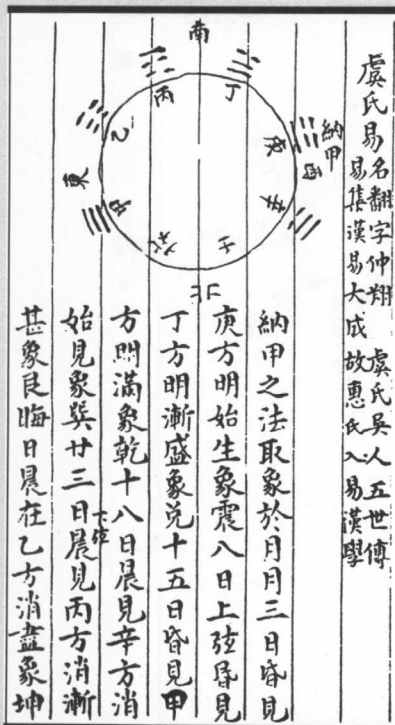 虞氏易
名翻字仲翔 虞氏吴人五世傅
易集漢易大成 故惠氏入易漢學
納甲
南
丁
丙
庚
西
乙
東
辛
甲
壬
癸
北
納甲之法取象於月月三日昏見
庚方明始生象震八日上弦昏見
丁方明漸盛象兌十五日昏見甲
方明滿象乾十八日晨見辛方消
始見象巽廿三日下弦晨見丙方消漸
甚象艮晦日晨在乙方消盡象坤